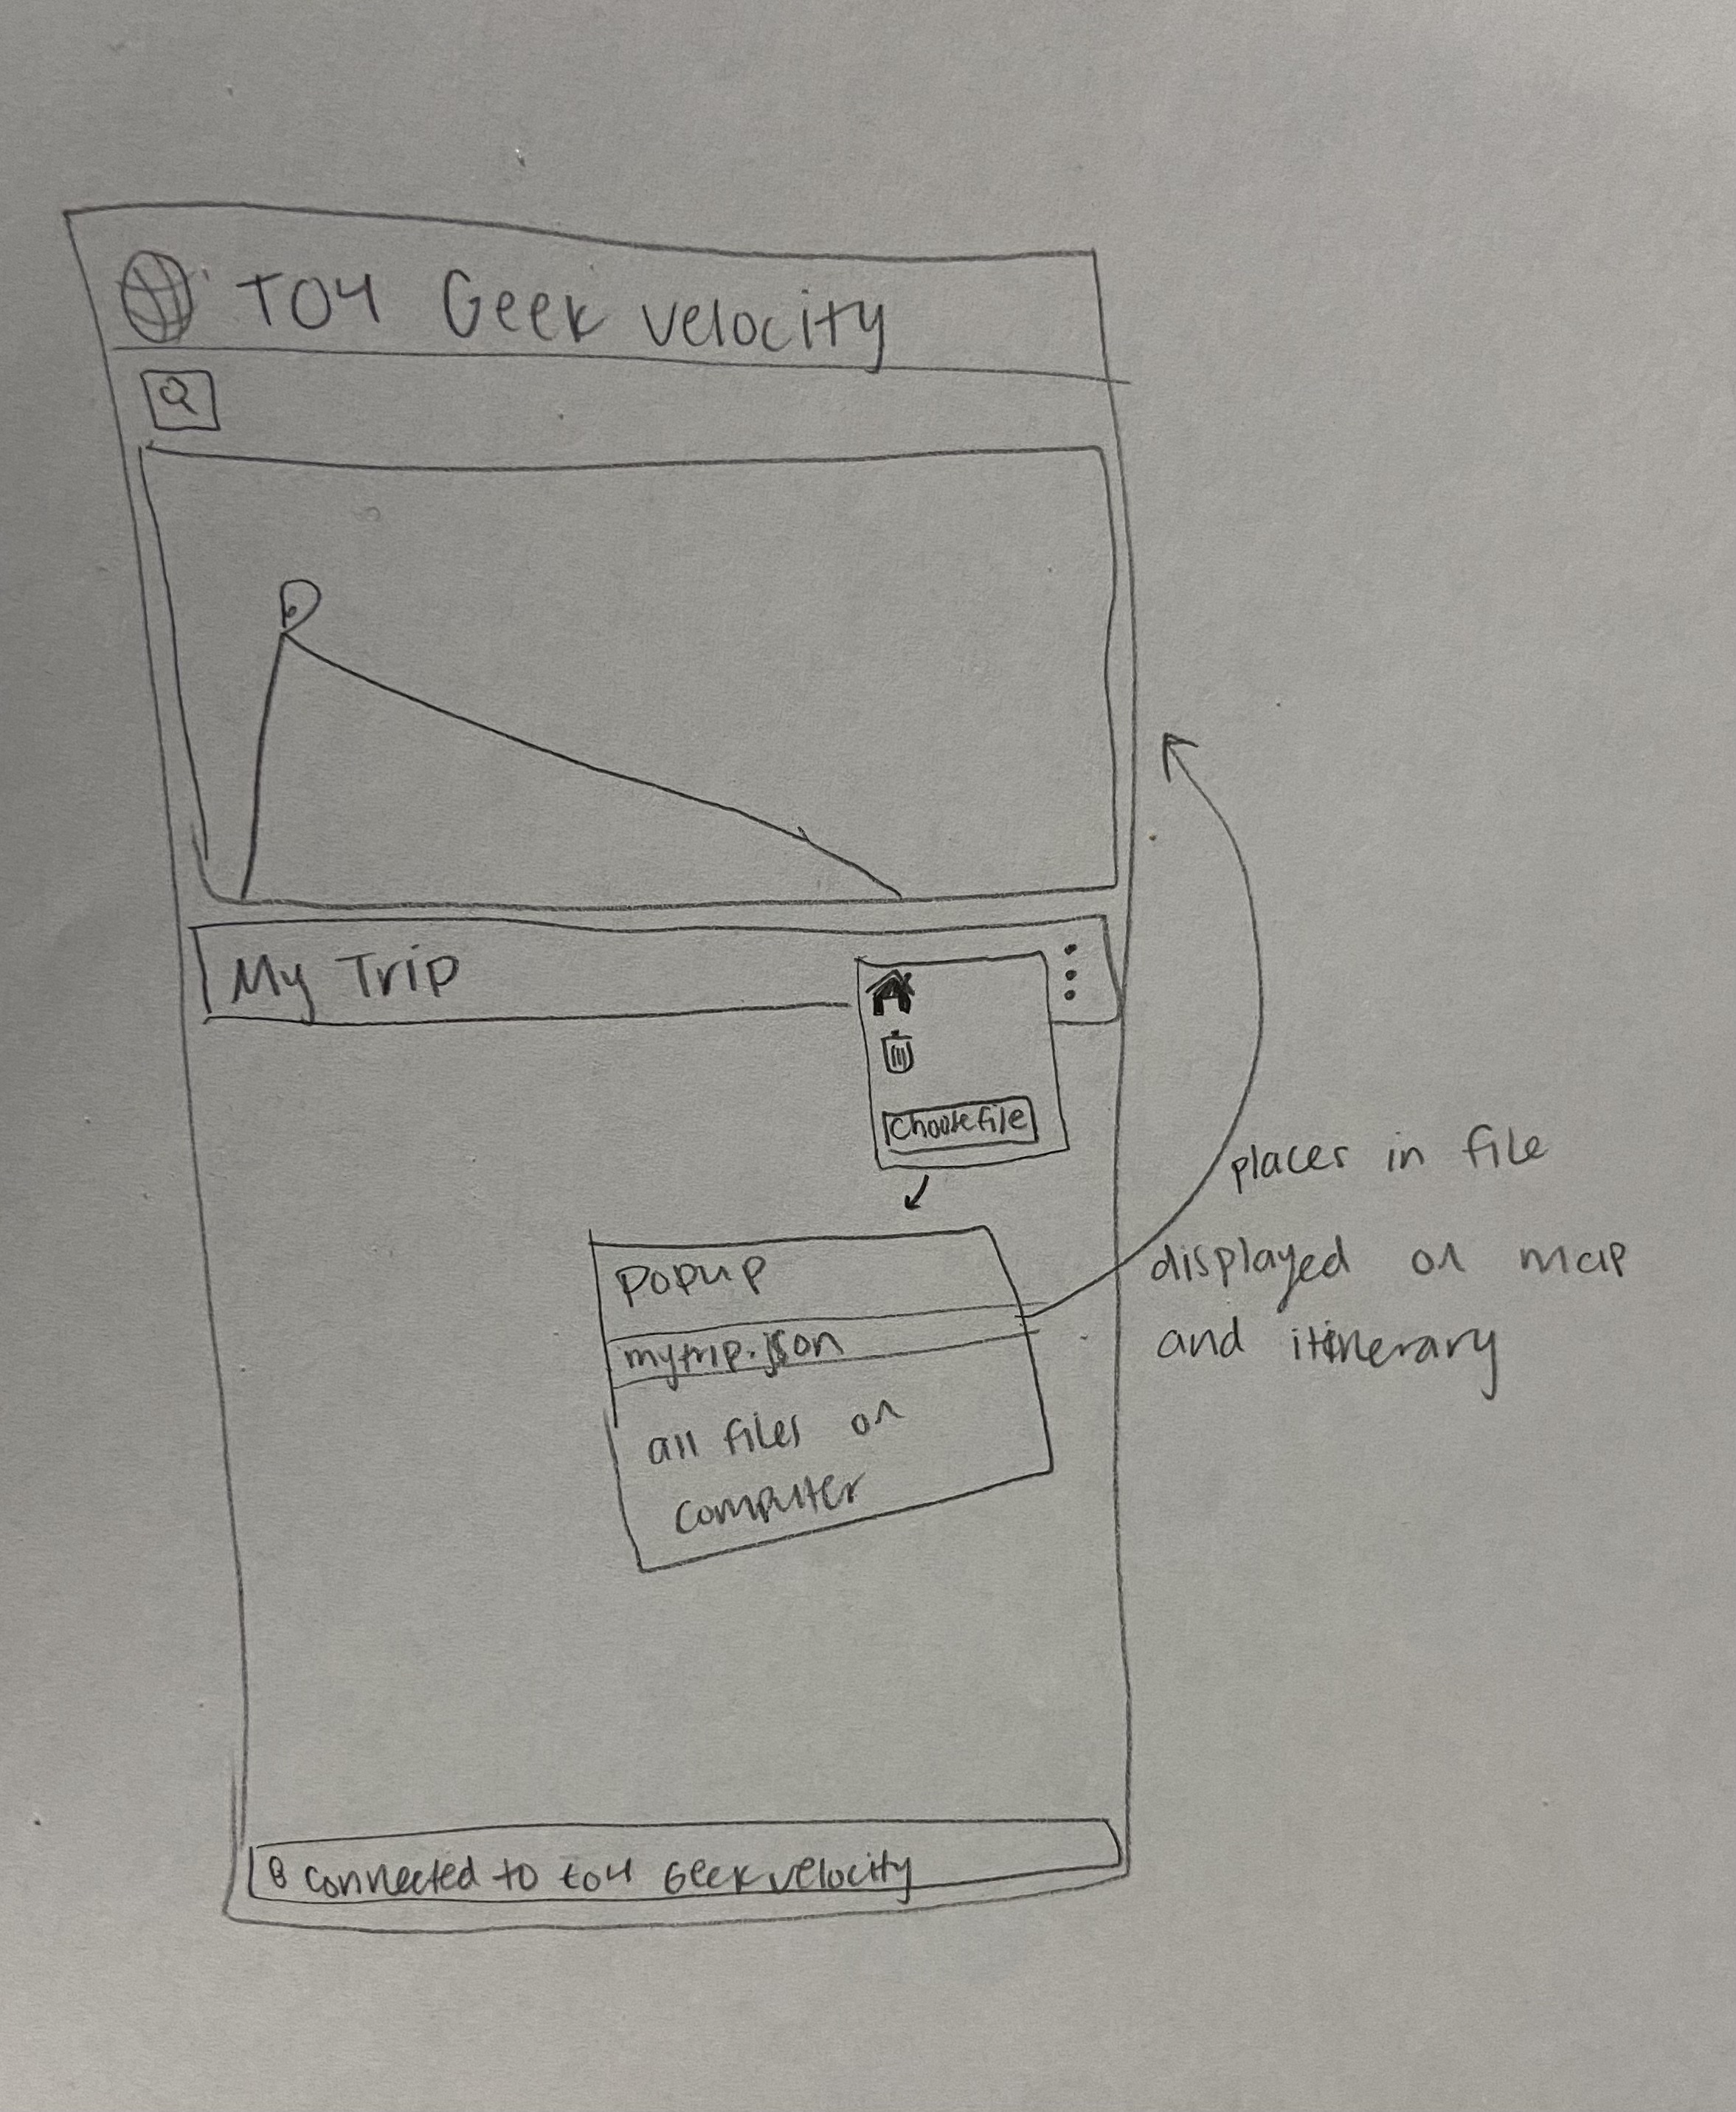 T04 Geek velocity
My Trip
Choose file
popup
mytrip.json
all files on
computer
places in file
displayed on map
and itinerary
connected to t04 Geek velocity